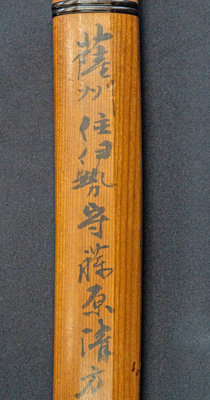 薩州住伊勢守藤原清方